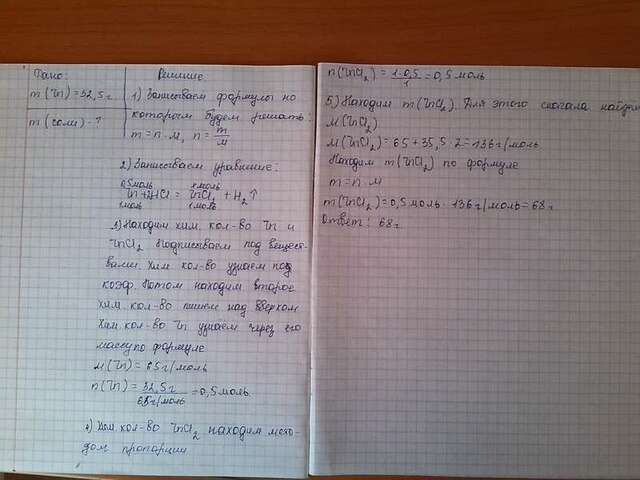 Дано:
m(Zn)=32,5г
m(соли)-?
Решение
1) Записываем формулы по
которым будем решать:
m=n·M, n=m/M
2) Записываем уравнение:
0,5моль xмоль
Zn+2HCl = ZnCl2 + H2↑
1моль 1моль
3) Находим хим. кол-во Zn и
ZnCl2 Подписываем под вещест-
вами. Хим кол-во узнаем под
коэф. Потом находим второе
хим. кол-во пишем над вверхом
Хим. кол-во Zn узнаем через его
массу по формуле
M(Zn) = 65г/моль
n(Zn) = 32,5г/65г/моль =0,5 моль
4) Хим кол-во ZnCl2 находим мето-
дом пропорции
n(ZnCl2) = 1·0,5/1 =0,5 моль
5) Находим m(ZnCl2). Для этого сначала найдем
M(ZnCl2)
M(ZnCl2)=65+35,5·2=136г/моль
Находим m(ZnCl2) по формуле
m=n·M
m(ZnCl2)=0,5 моль·136г/моль=68г
Ответ: 68г